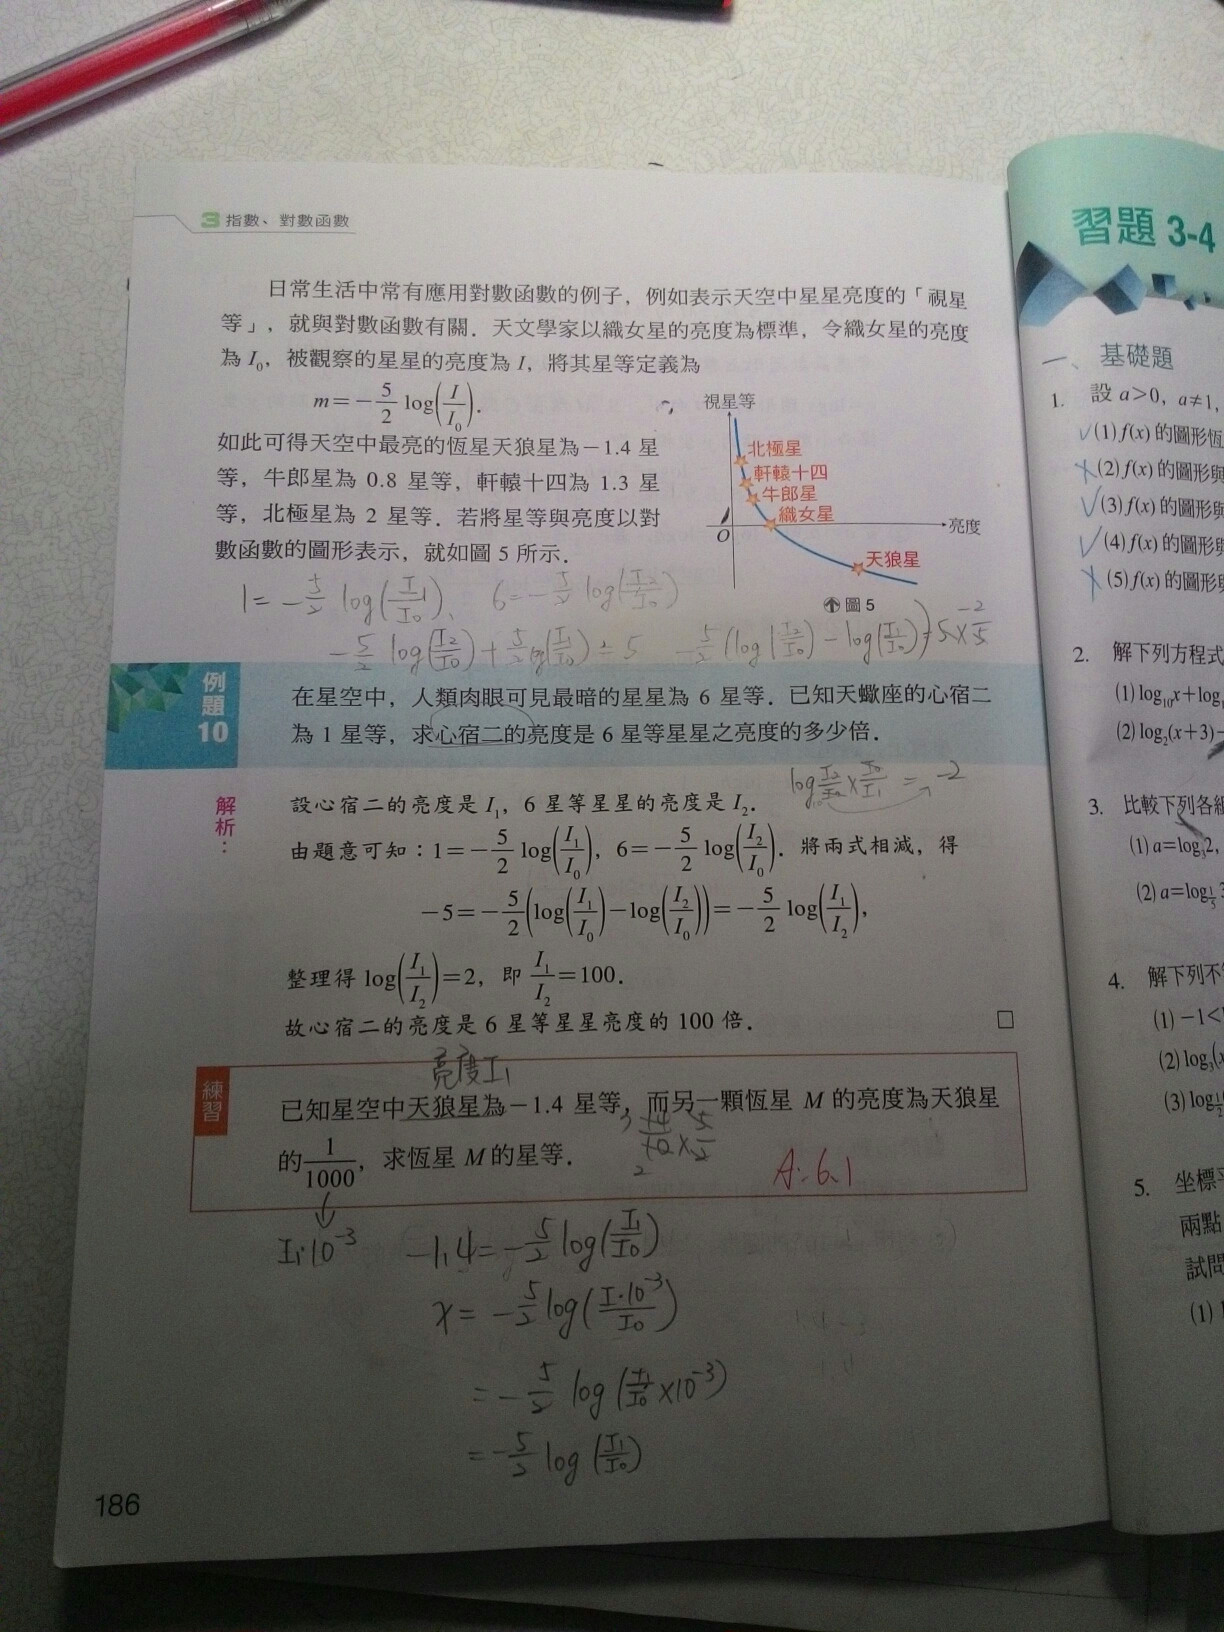 3 指數、對數函數
日常生活中常有應用對數函數的例子，例如表示天空中星星亮度的「視星
等」，就與對數函數有關．天文學家以織女星的亮度為標準，令織女星的亮度
為 I₀，被觀察的星星的亮度為 I，將其星等定義為
m=−5/2 log(I/I₀)．
如此可得天空中最亮的恆星天狼星為−1.4 星
等，牛郎星為 0.8 星等，軒轅十四為 1.3 星
等，北極星為 2 星等．若將星等與亮度以對
數函數的圖形表示，就如圖 5 所示．
視星等
北極星
軒轅十四
牛郎星
織女星
O
亮度
天狼星
圖 5
1=−5/2 log(I₁/I₀)、 6=−5/2 log(I₂/I₀)
−5/2 log(I₂/I₀)+5/2 log(I₁/I₀)=5 −5/2(log(I₂/I₀)−log(I₁/I₀))=5×−2/5
例題 10
在星空中，人類肉眼可見最暗的星星為 6 星等．已知天蠍座的心宿二
為 1 星等，求心宿二的亮度是 6 星等星星之亮度的多少倍．
log I₂/I₀×I₀/I₁=−2
解析：
設心宿二的亮度是 I₁，6 星等星星的亮度是 I₂．
由題意可知：1=−5/2 log(I₁/I₀)，6=−5/2 log(I₂/I₀)．將兩式相減，得
−5=−5/2(log(I₁/I₀)−log(I₂/I₀))=−5/2 log(I₁/I₂)，
整理得 log(I₁/I₂)=2，即 I₁/I₂=100．
故心宿二的亮度是 6 星等星星亮度的 100 倍． □
亮度I₁
練習
已知星空中天狼星為−1.4 星等，而另一顆恆星 M 的亮度為天狼星
的 1/1000，求恆星 M 的星等．
A:6.1
I₁·10⁻³
−1.4=−5/2 log(I₁/I₀)
x=−5/2 log(I·10⁻³/I₀)
=−5/2 log(I₁/I₀×10⁻³)
=−5/2 log(I₁/I₀)
186
習題 3-4
一、基礎題
1. 設 a>0，a≠1，
(1) f(x) 的圖形恆
(2) f(x) 的圖形與
(3) f(x) 的圖形與
(4) f(x) 的圖形與
(5) f(x) 的圖形與
2. 解下列方程式
(1) log₁₀x+log
(2) log₂(x+3)−
3. 比較下列各組
(1) a=log₃2，
(2) a=log
4. 解下列不
(1) −1<
(2) log₃(
(3) log
5. 坐標平
兩點
試問
(1)